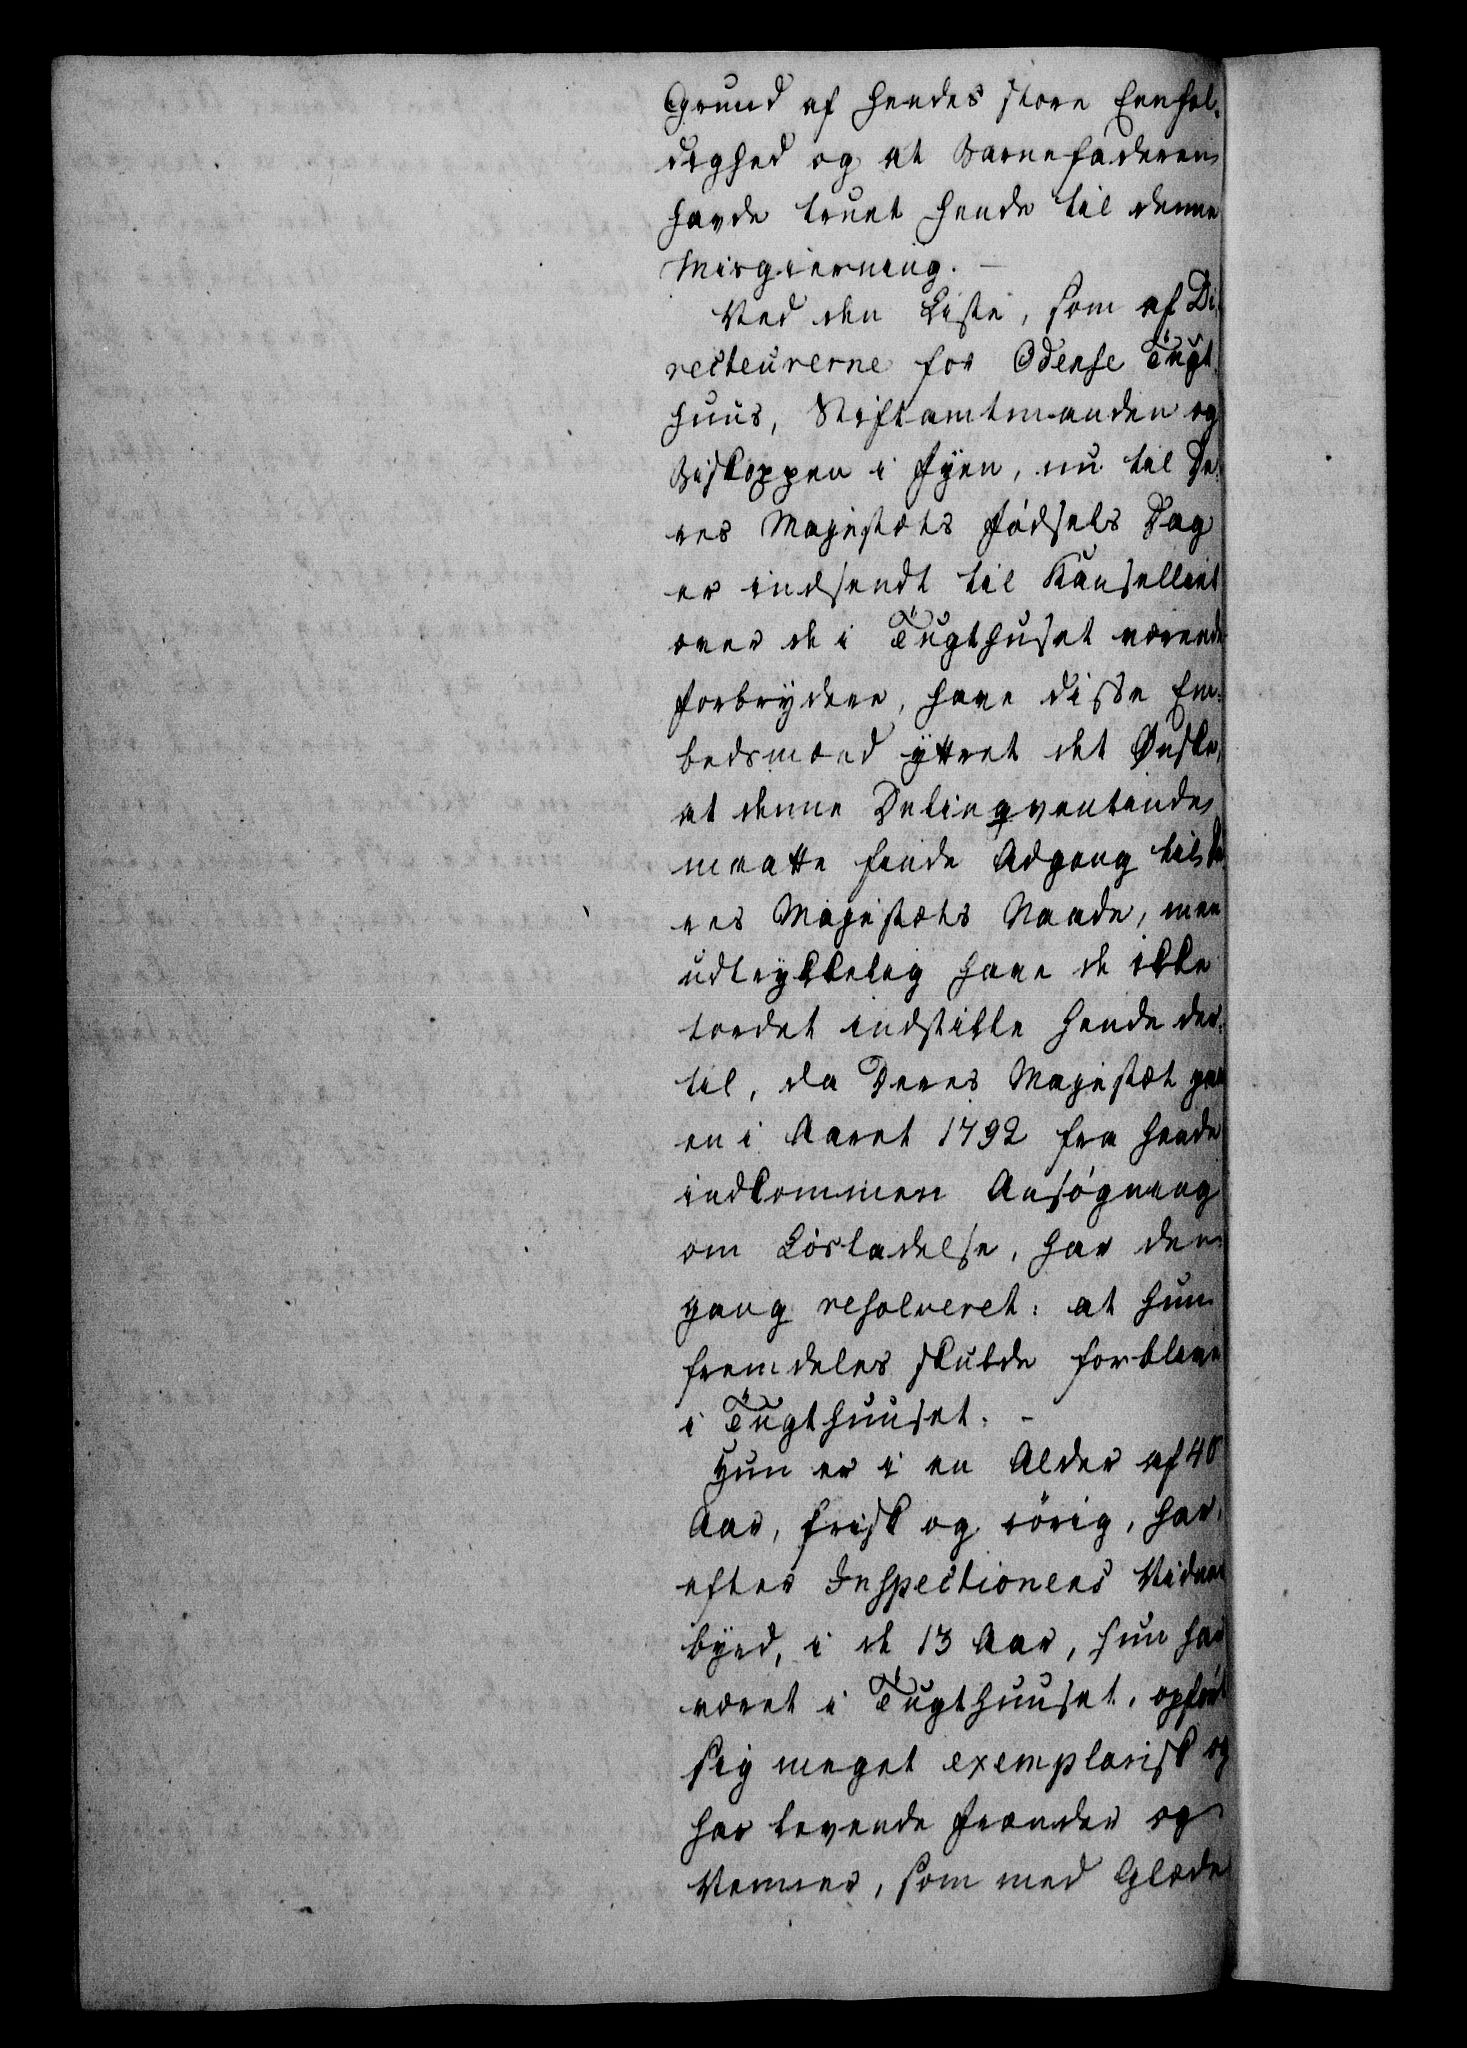 Grund af hendes store Eenfol-
dighed og at Barnefaderen
havde truet hende til denne
Misgierning. –
Ved den Liste, som af Di-
recteurerne for Odense Tugt-
huus, Stiftamtmanden og
Biskoppen i Fyen, nu til De-
res Majestæts Fødsels Dag
er indsendt til Kanselliet
over de i Tugthuset værende
Forbrydere, have disse Em-
bedsmænd yttret det Ønske,
at denne Delinqventinde
maatte finde Adgang til De
res Majestæts Naade, men
udtrykkelig have de ikke
tordet indstille hende der-
til, da Deres Majestæt paa
en i Aaret 1792 fra hende
indkommen Ansøgning
om Løsladelse, har den-
gang resolveret: at hun
fremdeles skulde forblive
i Tugthuuset. –
Hun er i en Alder af 40
Aar, frisk og rørig, har,
efter Inspectionens Vidnes
byrd, i de 13 Aar, hun har
været i Tugthuuset, opført
sig meget exemplarisk og
har levende Frænder og
Venner, som med Glæde